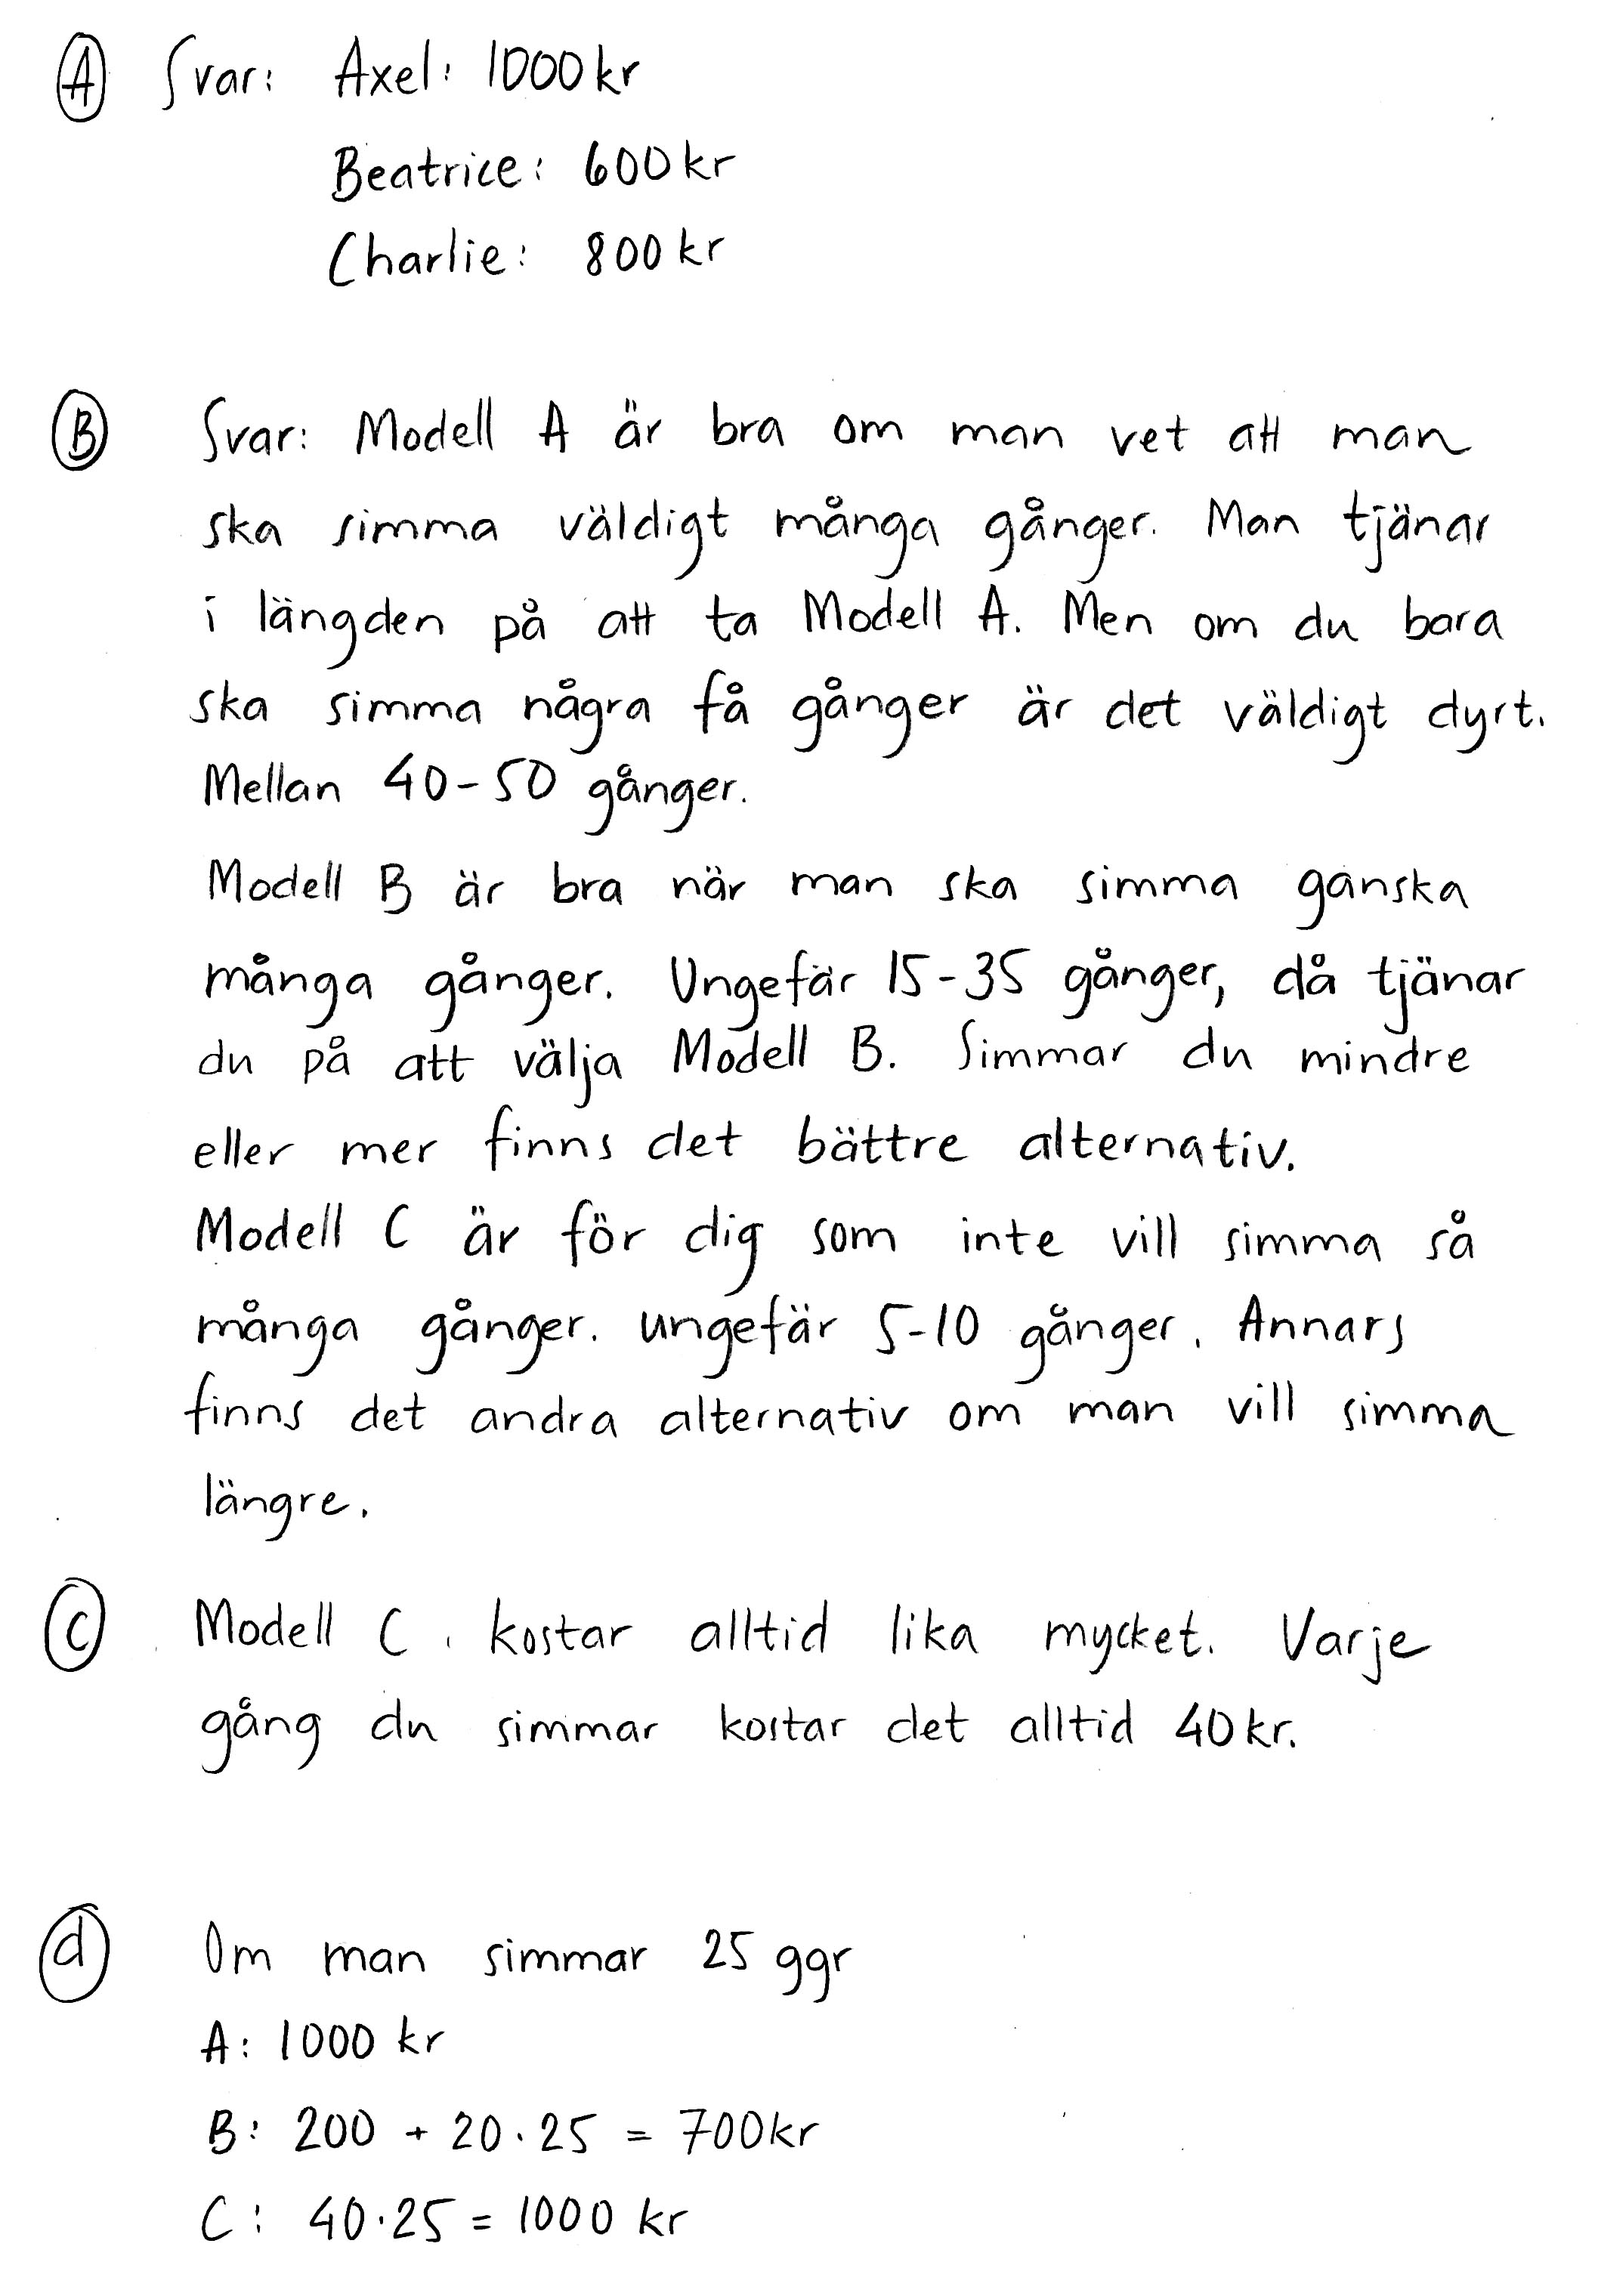 A Svar: Axel: 1000 kr
Beatrice: 600 kr
Charlie: 800 kr
B Svar: Modell A är bra om man vet att man
ska simma väldigt många gånger. Man tjänar
i längden på att ta Modell A. Men om du bara
ska simma några få gånger är det väldigt dyrt.
Mellan 40-50 gånger.
Modell B är bra när man ska simma ganska
många gånger. Ungefär 15-35 gånger, då tjänar
du på att välja Modell B. Simmar du mindre
eller mer finns det bättre alternativ.
Modell C är för dig som inte vill simma så
många gånger. ungefär 5-10 gånger. Annars
finns det andra alternativ om man vill simma
längre.
C Modell C kostar alltid lika mycket. Varje
gång du simmar kostar det alltid 40 kr.
d Om man simmar 25 ggr
A: 1000 kr
B: 200 + 20·25 = 700 kr
C: 40·25 = 1000 kr